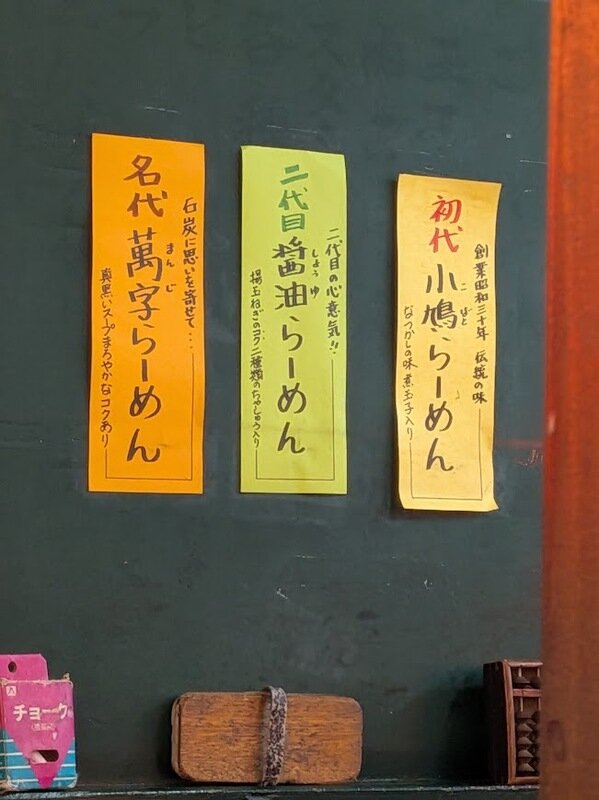 初代 小鳩らーめん
こばと
創業昭和三十年 伝統の味
なつかしの味 煮玉子入り
二代目 醤油らーめん
しょうゆ
二代目の心意気!!
揚玉ねぎのコク 二種類のちゃしゅう入り
名代 萬字らーめん
まんじ
石炭に思いを寄せて・・・
真黒いスープまろやかなコクあり
チョーク